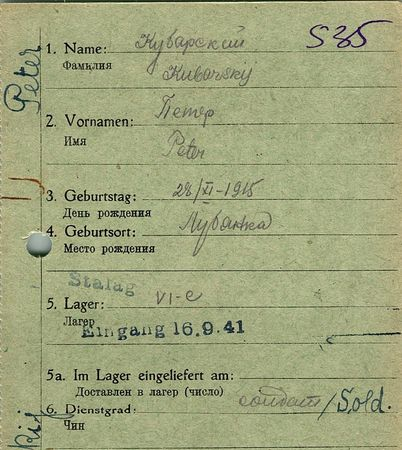 Peter
S35
1. Name: Кубарский
Фамилия
Kubarskij
2. Vornamen: Петер
Имя
Peter
3. Geburtstag: 28/XI-1915
День рождения
4. Geburtsort: Лубянка
Место рождения
Stalag
5. Lager: VI-C
Лагер
Eingang 16.9.41
5a. Im Lager eingeliefert am:
Доставлен в лагер (число)
6. Dienstgrad: солдат / Sold.
Чин